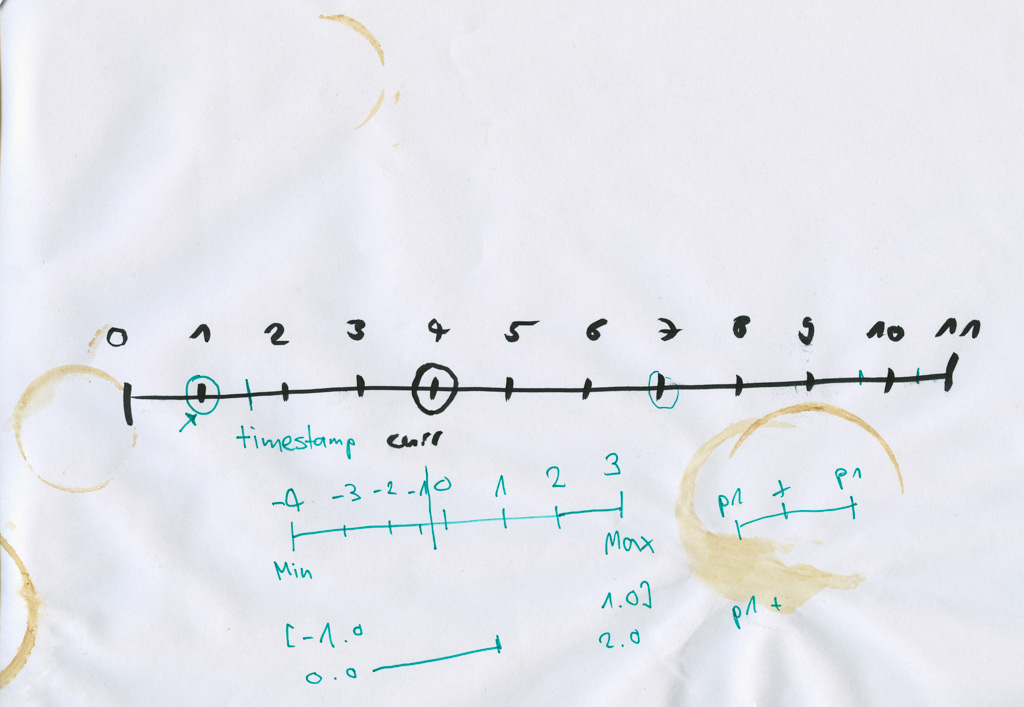 0 1 2 3 4 5 6 7 8 9 10 11
timestamp curr
-4 -3 -2 -1 0 1 2 3
Min Max
p1 + p1
[-1.0 1.0]
0.0 2.0
p1 +